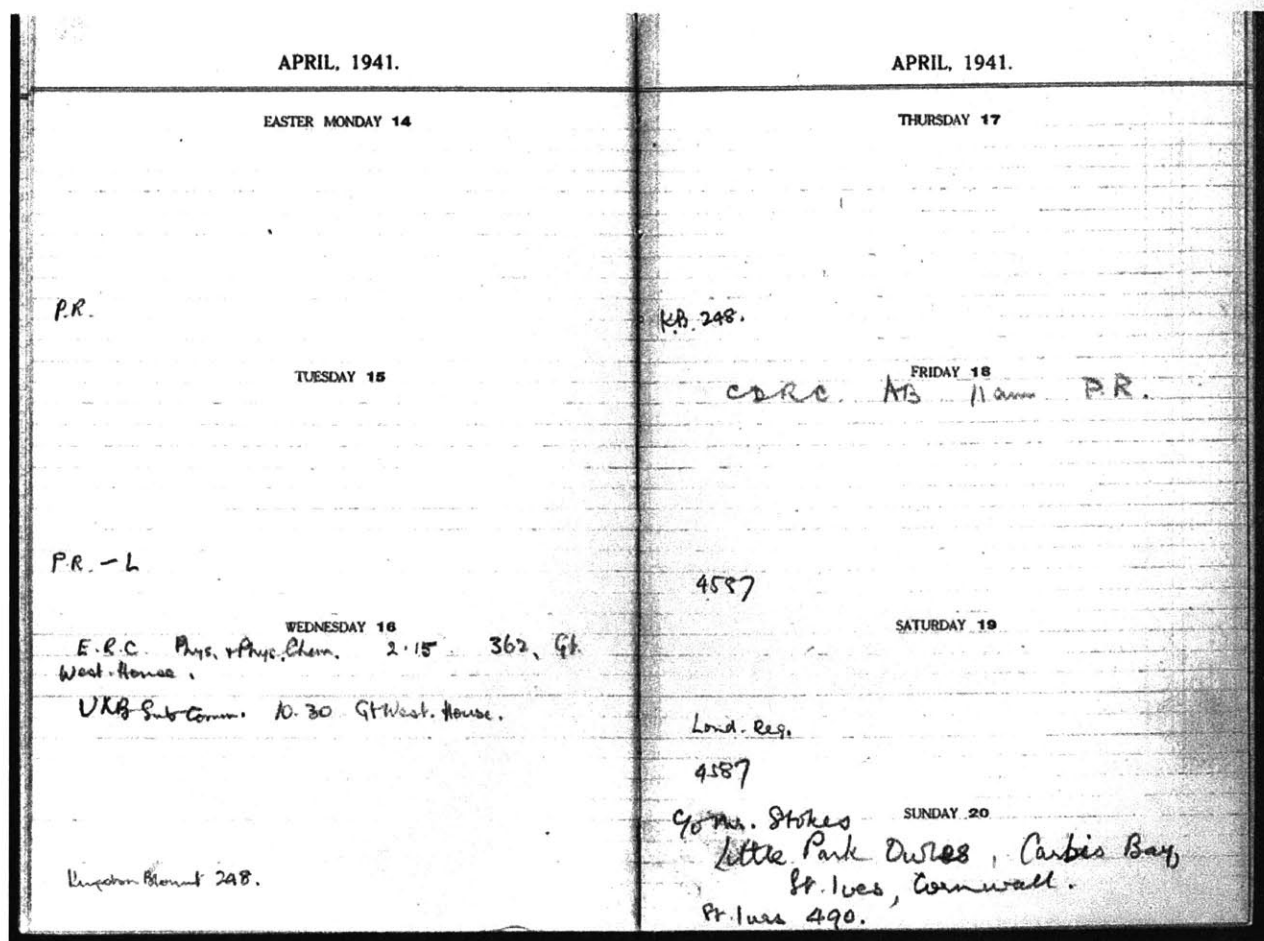 APRIL, 1941.
EASTER MONDAY 14
P.R.
TUESDAY 15
P.R. - L
WEDNESDAY 16
E.R.C. Phys. & Phys. Chem. 2.15 362, Gt.
West. House.
UXB Sub Comm. 10.30 Gt West. House.
Kingston Blount 248.
APRIL, 1941.
THURSDAY 17
K.B. 248.
FRIDAY 18
CDRC. AB 11 am P.R.
4587
SATURDAY 19
Lond. Reg.
4587
SUNDAY 20
c/o Mrs. Stokes
Little Park Owles, Carbis Bay,
St. Ives, Cornwall.
St. Ives 490.